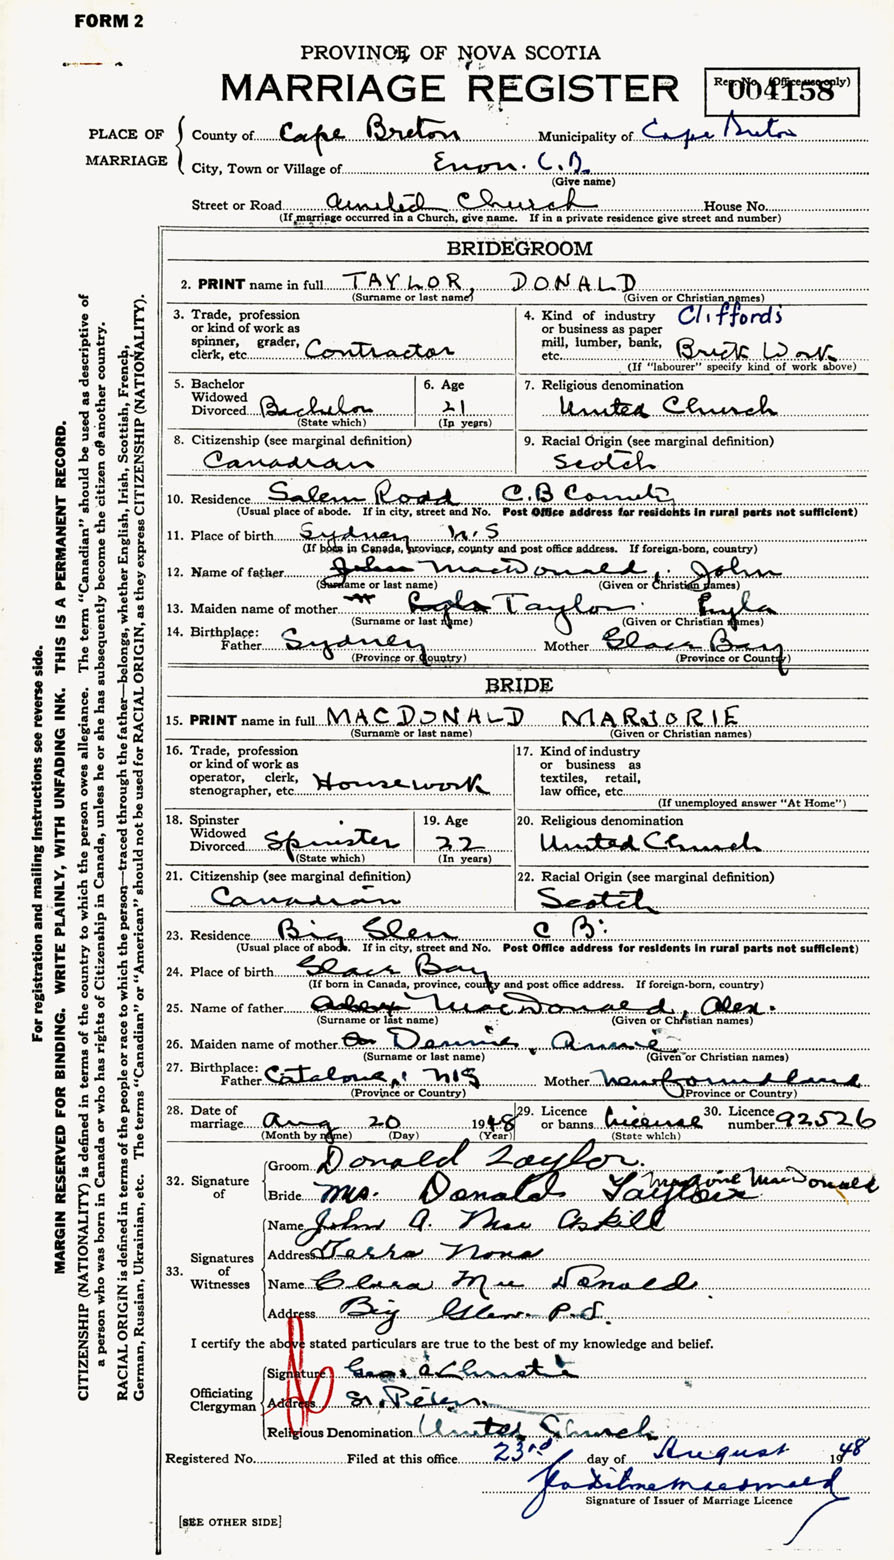 FORM 2
PROVINCE OF NOVA SCOTIA
MARRIAGE REGISTER
Reg. No. (Office use only)
004158
PLACE OF MARRIAGE
County of Cape Breton Municipality of Cape Breton
City, Town or Village of Enon. C.B.
(Give name)
Street or Road United Church House No.
(If marriage occurred in a Church, give name. If in a private residence give street and number)
BRIDEGROOM
2. PRINT name in full TAYLOR, DONALD
(Surname or last name) (Given or Christian names)
3. Trade, profession or kind of work as spinner, grader, clerk, etc. Contractor
4. Kind of industry or business as paper mill, lumber, bank, etc. Cliffords Brick Work
(If "labourer" specify kind of work above)
5. Bachelor Widowed Divorced Bachelor
(State which)
6. Age 21
(In years)
7. Religious denomination
United Church
8. Citizenship (see marginal definition)
Canadian
9. Racial Origin (see marginal definition)
Scotch
10. Residence Salem Road C.B County
(Usual place of abode. If in city, street and No. Post Office address for residents in rural parts not sufficient)
11. Place of birth Sydney N.S
(If born in Canada, province, county and post office address. If foreign-born, country)
12. Name of father John MacDonald, John
(Surname or last name) (Given or Christian names)
13. Maiden name of mother Taylor
(Surname or last name) (Given or Christian names)
14. Birthplace: Father Sydney Mother Glace Bay
(Province or Country) (Province or Country)
BRIDE
15. PRINT name in full MACDONALD MARJORIE
(Surname or last name) (Given or Christian names)
16. Trade, profession or kind of work as operator, clerk, stenographer, etc. Housework
17. Kind of industry or business as textiles, retail, law office, etc.
(If unemployed answer "At Home")
18. Spinster Widowed Divorced Spinster
(State which)
19. Age 22
(In years)
20. Religious denomination
United Church
21. Citizenship (see marginal definition)
Canadian
22. Racial Origin (see marginal definition)
Scotch
23. Residence Big Glen C B.
(Usual place of abode. If in city, street and No. Post Office address for residents in rural parts not sufficient)
24. Place of birth Glace Bay
(If born in Canada, province, county and post office address. If foreign-born, country)
25. Name of father MacDonald, Alex.
(Surname or last name) (Given or Christian names)
26. Maiden name of mother Dennis, Annie
(Surname or last name) (Given or Christian names)
27. Birthplace: Father Catalone, N.S Mother Newfoundland
(Province or Country) (Province or Country)
28. Date of marriage Aug 20 1948
(Month by name) (Day) (Year)
29. Licence or banns License
(State which)
30. Licence number 92526
32. Signature of
Groom Donald Taylor.
Bride Mrs. Donald Taylor Marjorie MacDonald
33. Signatures of Witnesses
Name John A. MacAskill
Address Terra Nona
Name Clara MacDonald
Address Big Glen P.S.
I certify the above stated particulars are true to the best of my knowledge and belief.
Officiating Clergyman
Signature Christie
Address St. Peters.
Religious Denomination United Church
Registered No. Filed at this office 23rd day of August 1948
Signature of Issuer of Marriage Licence
[SEE OTHER SIDE]
For registration and mailing instructions see reverse side.
MARGIN RESERVED FOR BINDING. WRITE PLAINLY, WITH UNFADING INK. THIS IS A PERMANENT RECORD.
CITIZENSHIP (NATIONALITY) is defined in terms of the country to which the person owes allegiance. The term "Canadian" should be used as descriptive of
a person who was born in Canada or who has rights of Citizenship in Canada, unless he or she has subsequently become the citizen of another country.
RACIAL ORIGIN is defined in terms of the people or race to which the person—traced through the father—belongs, whether English, Irish, Scottish, French,
German, Russian, Ukrainian, etc. The terms "Canadian" or "American" should not be used for RACIAL ORIGIN, as they express CITIZENSHIP (NATIONALITY).